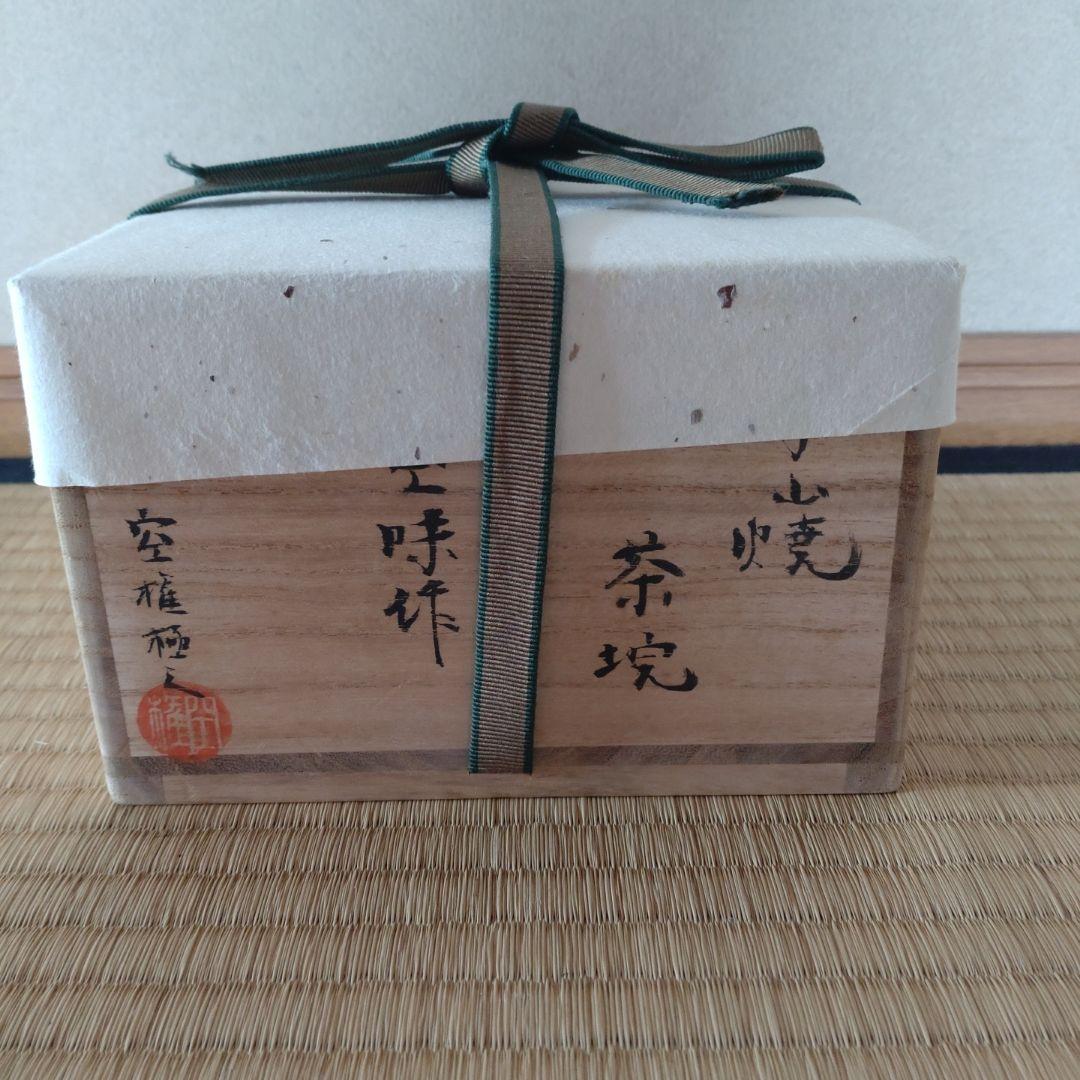 山焼
茶埦
味作
空権極之